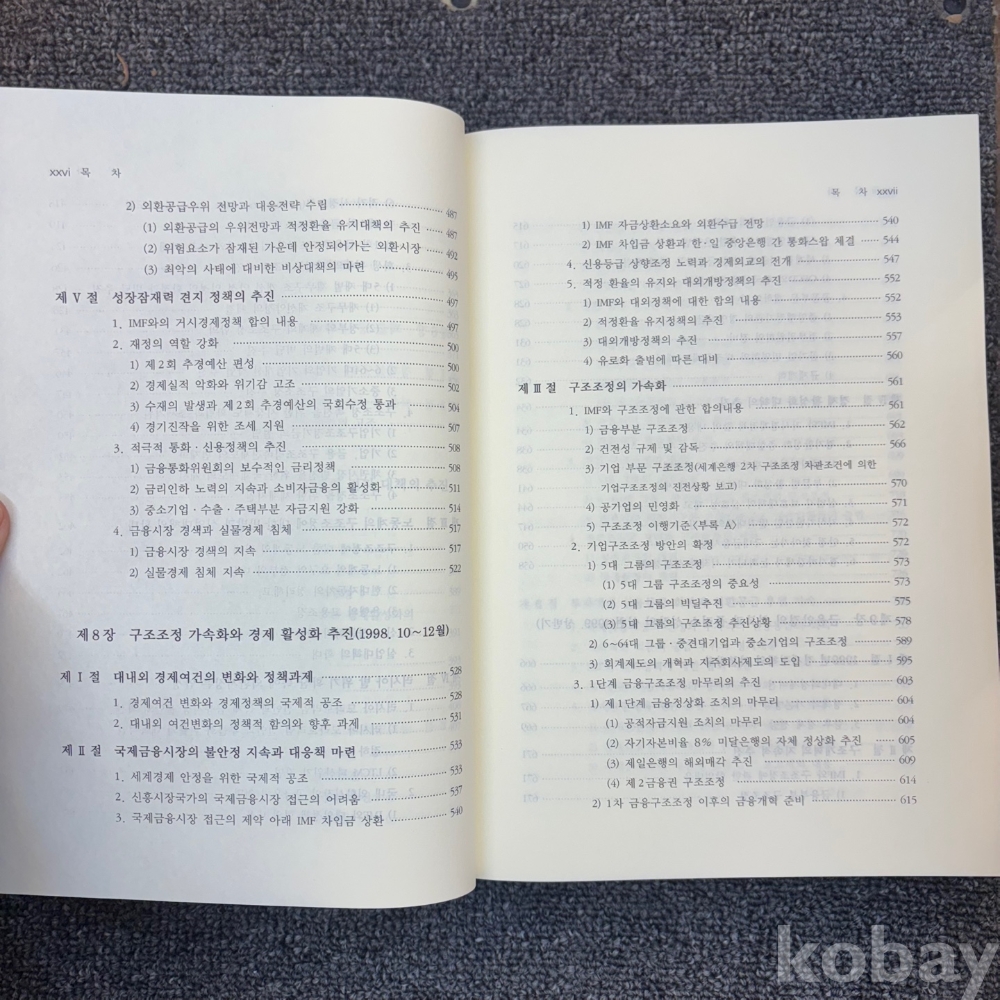 xxvi 목 차
2) 외환공급우위 전망과 대응전략 수립 487
(1) 외환공급의 우위전망과 적정환율 유지대책의 추진 487
(2) 위험요소가 잠재된 가운데 안정되어가는 외환시장 492
(3) 최악의 사태에 대비한 비상대책의 마련 495
제 Ⅴ 절 성장잠재력 견지 정책의 추진 497
1. IMF와의 거시경제정책 합의 내용 497
2. 재정의 역할 강화 500
1) 제2회 추경예산 편성 500
2) 경제실적 악화와 위기감 고조 502
3) 수재의 발생과 제2회 추경예산의 국회수정 통과 504
4) 경기진작을 위한 조세 지원 507
3. 적극적 통화·신용정책의 추진 508
1) 금융통화위원회의 보수적인 금리정책 508
2) 금리인하 노력의 지속과 소비자금융의 활성화 511
3) 중소기업·수출·주택부분 자금지원 강화 514
4. 금융시장 경색과 실물경제 침체 517
1) 금융시장 경색의 지속 517
2) 실물경제 침체 지속 522
제8장 구조조정 가속화와 경제 활성화 추진(1998. 10~12월)
제 Ⅰ 절 대내외 경제여건의 변화와 정책과제 528
1. 경제여건 변화와 경제정책의 국제적 공조 528
2. 대내외 여건변화의 정책적 함의와 향후 과제 531
제 Ⅱ 절 국제금융시장의 불안정 지속과 대응책 마련 533
1. 세계경제 안정을 위한 국제적 공조 533
2. 신흥시장국가의 국제금융시장 접근의 어려움 537
3. 국제금융시장 접근의 제약 아래 IMF 차입금 상환 540
목 차 xxvii
1) IMF 자금상환소요와 외환수급 전망 540
2) IMF 차입금 상환과 한·일 중앙은행 간 통화스왑 체결 544
4. 신용등급 상향조정 노력과 경제외교의 전개 547
5. 적정 환율의 유지와 대외개방정책의 추진 552
1) IMF와 대외정책에 대한 합의 내용 552
2) 적정환율 유지정책의 추진 553
3) 대외개방정책의 추진 557
4) 유로화 출범에 따른 대비 560
제 Ⅲ 절 구조조정의 가속화 561
1. IMF와 구조조정에 관한 합의내용 561
1) 금융부분 구조조정 562
2) 건전성 규제 및 감독 566
3) 기업 부문 구조조정(세계은행 2차 구조조정 차관조건에 의한
기업구조조정의 진전상황 보고) 570
4) 공기업의 민영화 571
5) 구조조정 이행기준<부록 A> 572
2. 기업구조조정 방안의 확정 572
1) 5대 그룹의 구조조정 573
(1) 5대 그룹 구조조정의 중요성 573
(2) 5대 그룹의 빅딜추진 575
(3) 5대 그룹의 구조조정 추진상황 578
2) 6~64대 그룹·중견대기업과 중소기업의 구조조정 589
3) 회계제도의 개혁과 지주회사제도의 도입 595
3. 1단계 금융구조조정 마무리의 추진 603
1) 제1단계 금융정상화 조치의 마무리 604
(1) 공적자금지원 조치의 마무리 604
(2) 자기자본비율 8% 미달은행의 자체 정상화 추진 605
(3) 제일은행의 해외매각 추진 609
(4) 제2금융권 구조조정 614
2) 1차 금융구조조정 이후의 금융개혁 준비 615
kobay